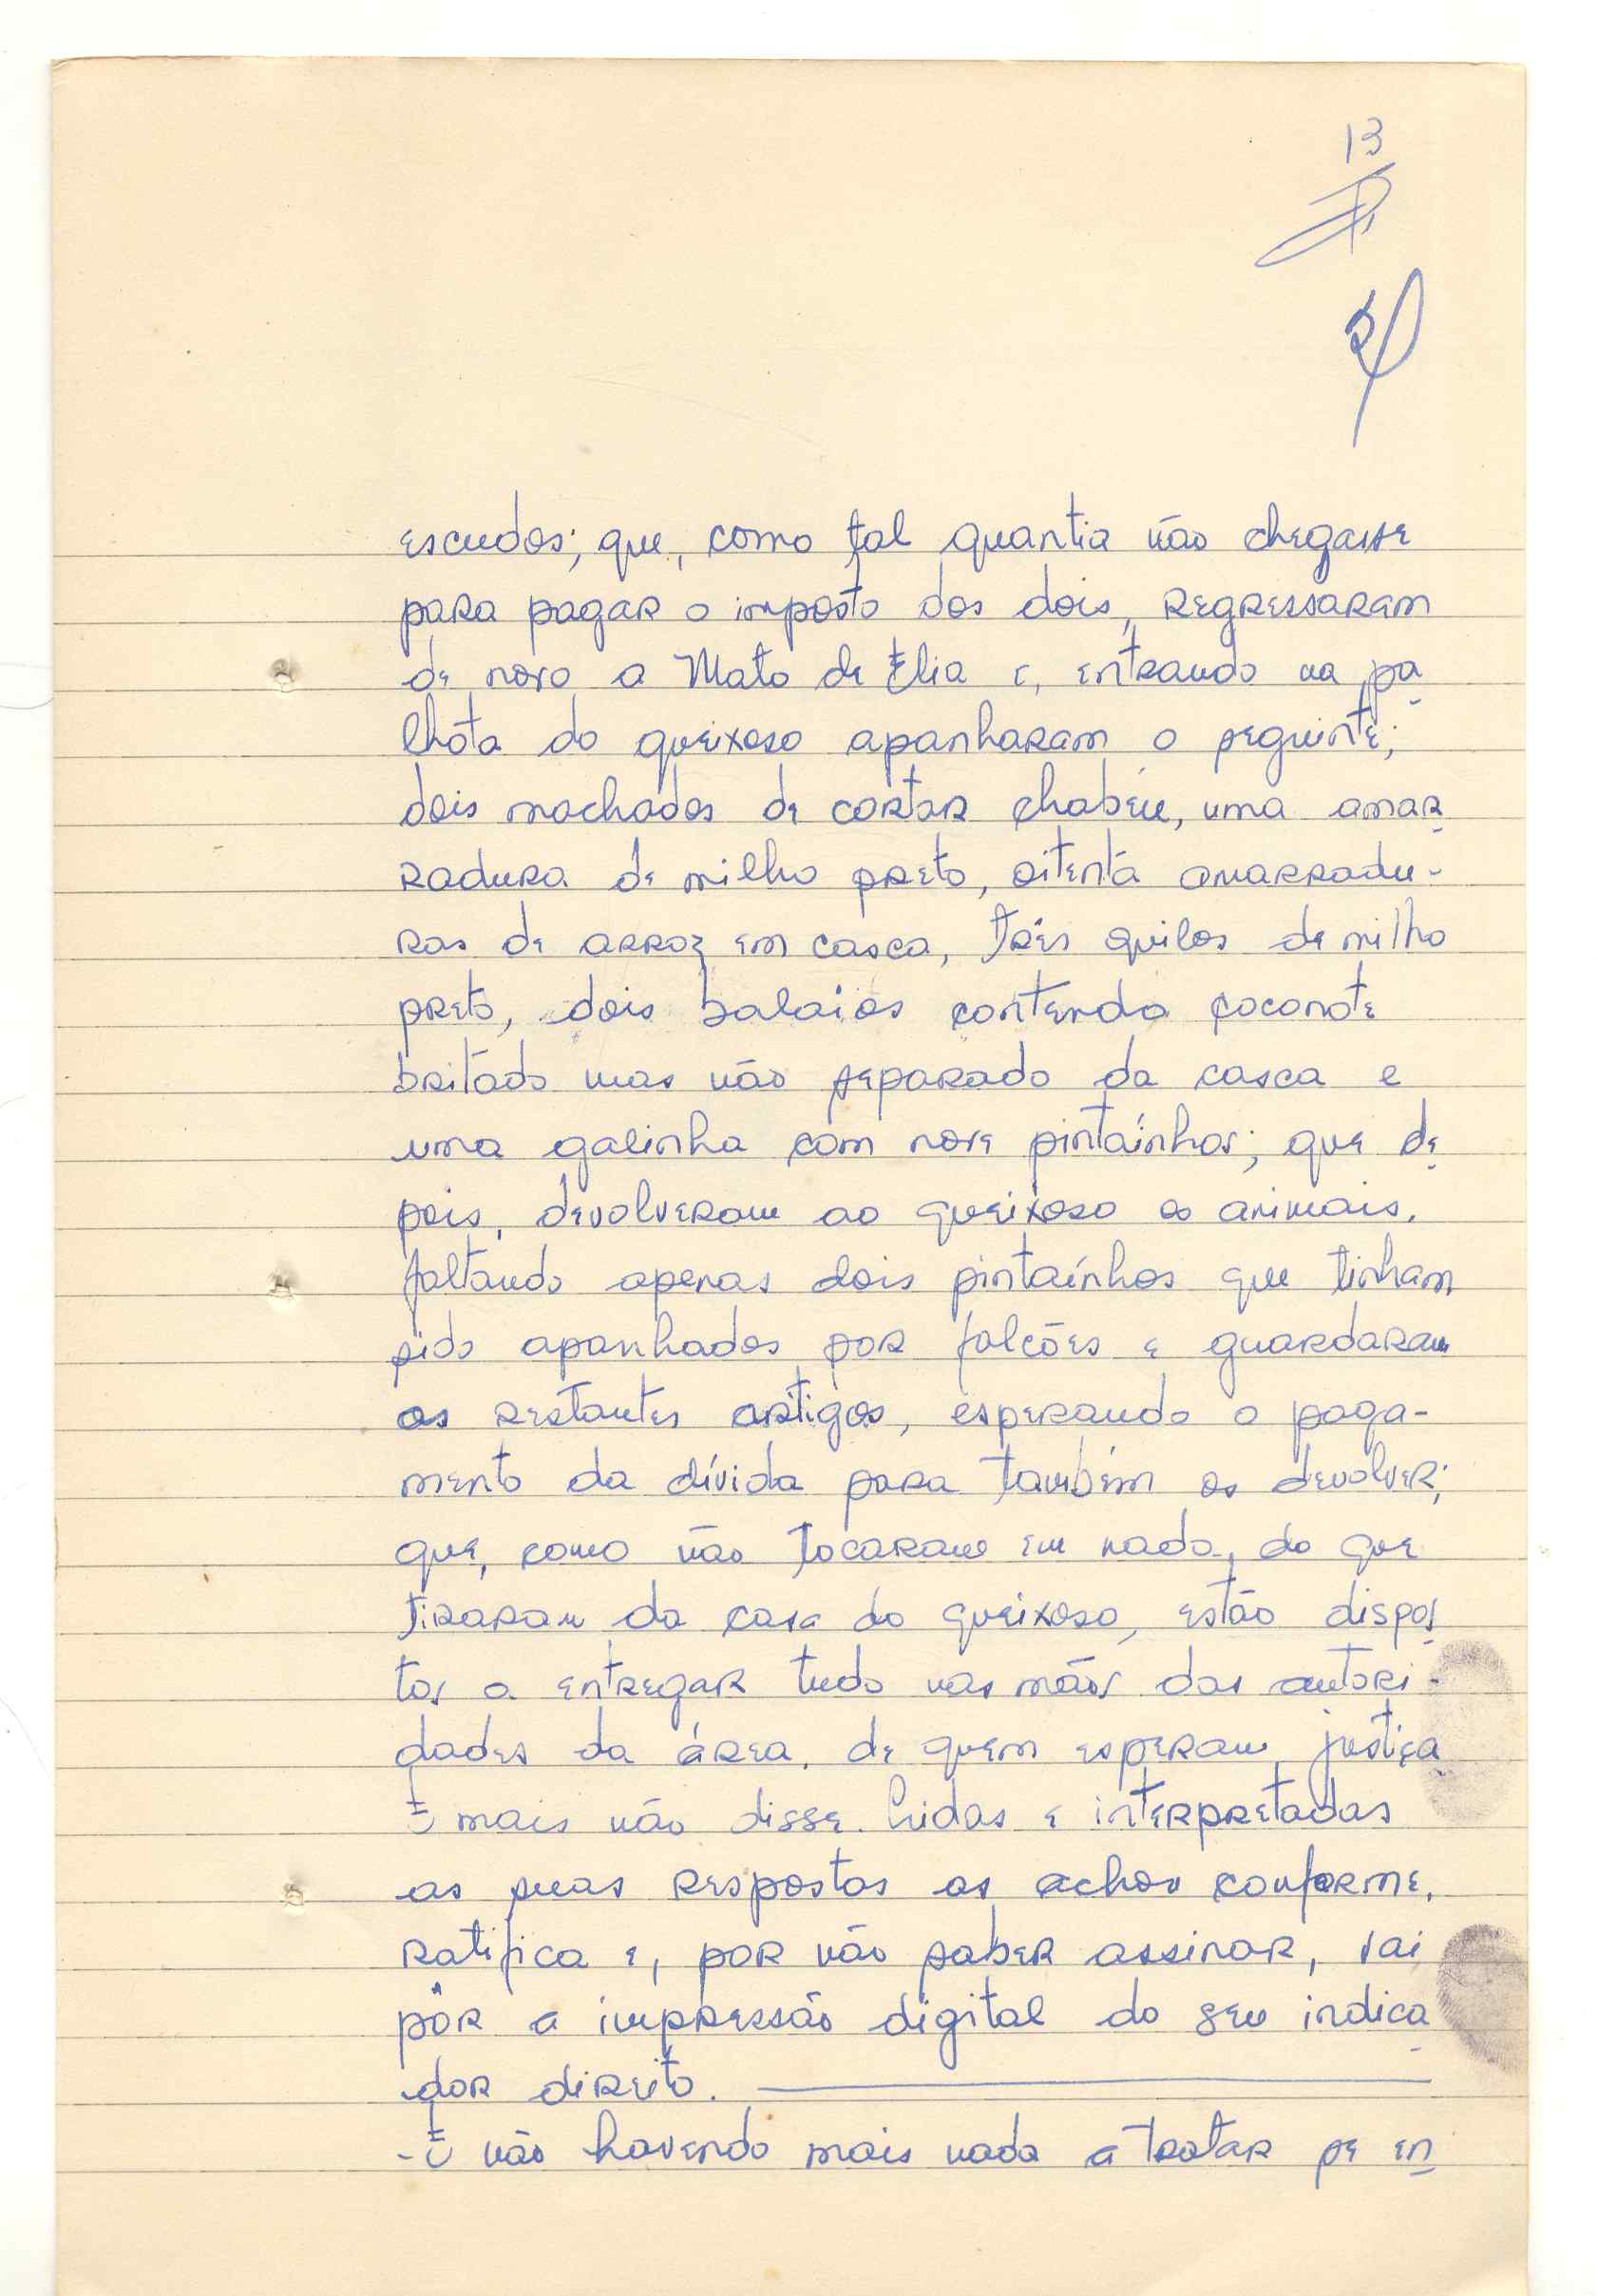 13
escudos; que, como tal quantia não chegasse
para pagar o imposto dos dois, regressaram
de novo a Mato de Elia e, entrando na pa
lhota do queixoso apanharam o seguinte;
dois machados de cortar chabéu, uma amar
radura de milho preto, oitenta amarradu-
ras de arroz em casca, três quilos de milho
preto, dois balaios contendo coconote
britado mas não separado da casca e
uma galinha com nove pintaínhos; que de
pois, devolveram ao queixoso os animais,
faltando apenas dois pintaínhos que tinham
sido apanhados por falcões e guardaram
os restantes artigos, esperando o paga-
mento da dívida para também os devolver;
que, como não tocaram em nada, do que
tiraram da casa do queixoso, estão dispos
tos a entregar tudo nas mãos das autori-
dades da área, de quem esperam justiça
E mais não disse. Lidas e interpretadas
as suas respostas as achou conforme,
ratifica e, por não saber assinar, vai
pôr a impressão digital do seu indica
dor direito.
- E não havendo mais nada a tratar se en